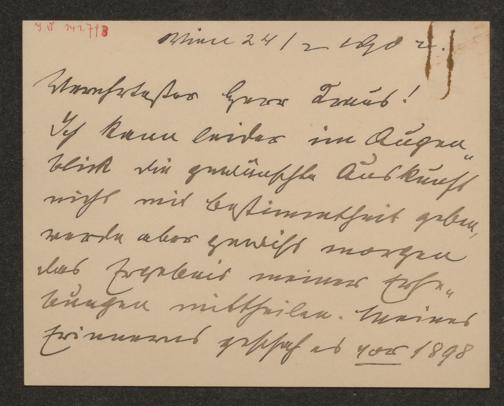 Wien 24/2 190
Verehrtester Herr Kraus!
Ich kann leider im Augen„
blick die gewünschte Auskunft
nicht mit Bestimmtheit geben,
werde aber gewiß morgen
das Ergebnis meiner Erhe„
bungen mittheilen. Meines
Erinnerns geschah es vor 1898